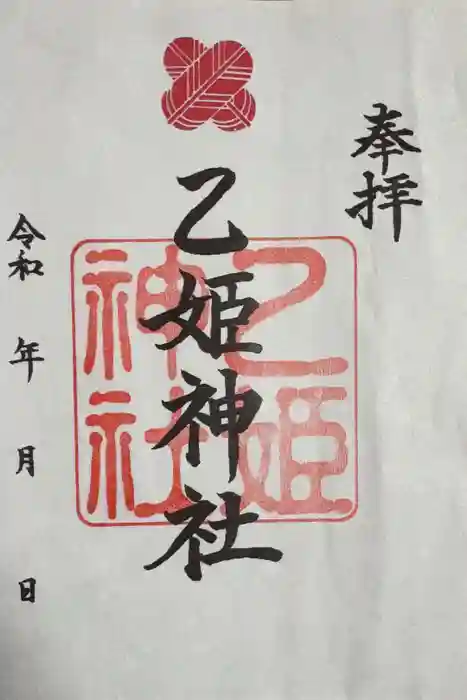 奉拝
乙姫神社
乙姫
神社
令和 年 月 日